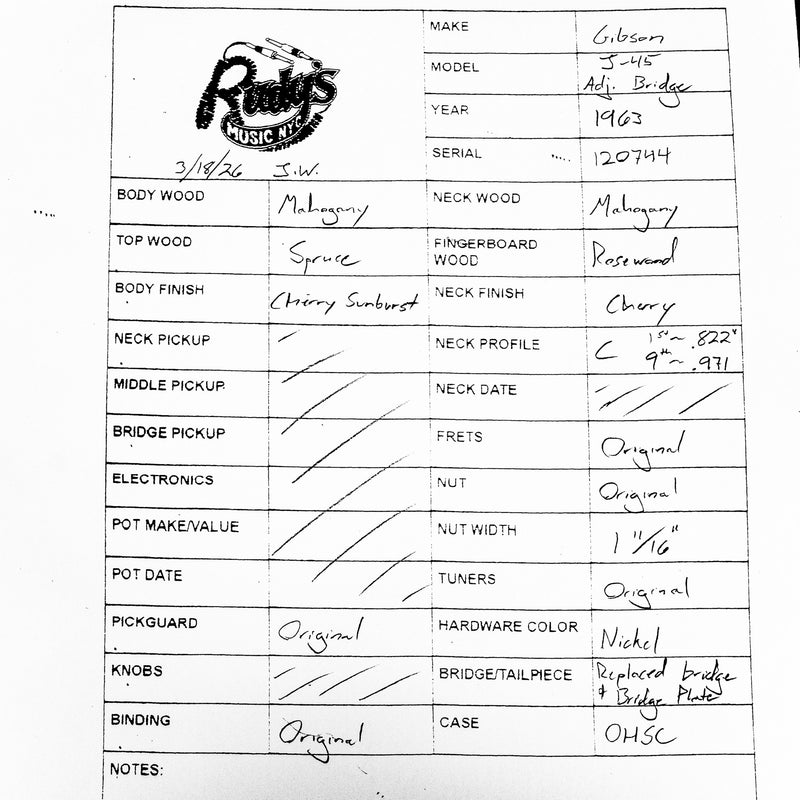 Rudy's
MUSIC NYC
3/18/26 J.W.
MAKE Gibson
MODEL J-45
Adj. Bridge
YEAR 1963
SERIAL 120744
BODY WOOD Mahogany NECK WOOD Mahogany
TOP WOOD Spruce FINGERBOARD
WOOD Rosewood
BODY FINISH Cherry Sunburst NECK FINISH Cherry
NECK PICKUP NECK PROFILE C 1st ~ .822"
9th ~ .971
MIDDLE PICKUP NECK DATE
BRIDGE PICKUP FRETS Original
ELECTRONICS NUT Original
POT MAKE/VALUE NUT WIDTH 1 11/16"
POT DATE TUNERS Original
PICKGUARD Original HARDWARE COLOR Nickel
KNOBS BRIDGE/TAILPIECE Replaced bridge
+ Bridge Plate
BINDING Original CASE OHSC
NOTES: